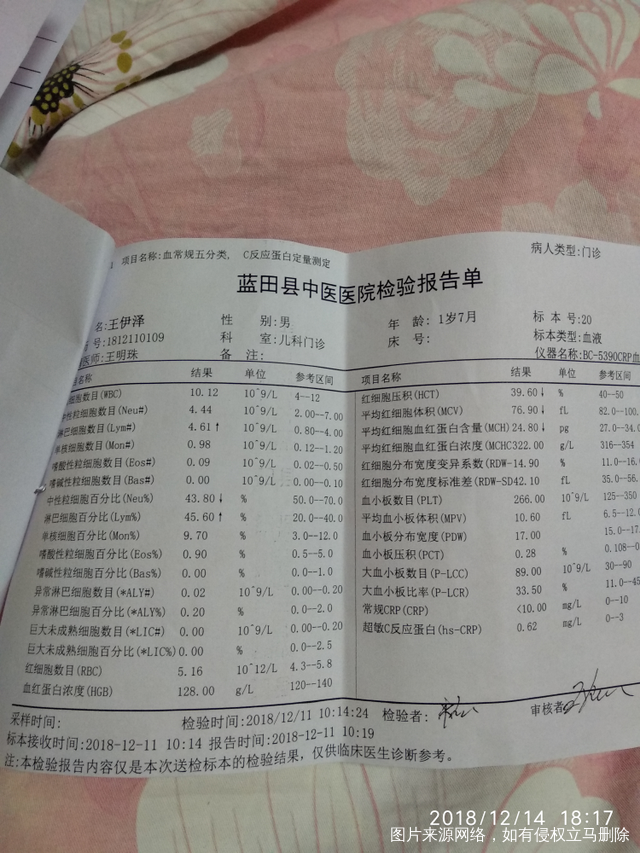 项目名称:血常规五分类, C反应蛋白定量测定
病人类型:门诊
蓝田县中医医院检验报告单
名:王伊泽 性 别:男 年 龄: 1岁7月 标 本 号:20
号:1812110109 科 室:儿科门诊 床 号: 标本类型:血液
医师:王明珠 备 注: 仪器名称:BC-5390CRP血
名称 结果 单位 参考区间 项目名称 结果 单位 参考区间
细胞数目(WBC) 10.12 10^9/L 4--12
中性粒细胞数目(Neu#) 4.44 10^9/L 2.00--7.00
淋巴细胞数目(Lym#) 4.61↑ 10^9/L 0.80--4.00
单核细胞数目(Mon#) 0.98 10^9/L 0.12--1.20
嗜酸性粒细胞数目(Eos#) 0.09 10^9/L 0.02--0.50
嗜碱性粒细胞数目(Bas#) 0.00 10^9/L 0.00--0.10
中性粒细胞百分比(Neu%) 43.80↓ % 50.0--70.0
淋巴细胞百分比(Lym%) 45.60↑ % 20.0--40.0
单核细胞百分比(Mon%) 9.70 % 3.0--12.0
嗜酸性粒细胞百分比(Eos%) 0.90 % 0.5--5.0
嗜碱性粒细胞百分比(Bas%) 0.00 % 0.0--1.0
异常淋巴细胞数目(*ALY#) 0.02 10^9/L 0.00--0.20
异常淋巴细胞百分比(*ALY%) 0.20 % 0.0--2.0
巨大未成熟细胞数目(*LIC#) 0.00 10^9/L 0.00--0.20
巨大未成熟细胞百分比(*LIC%) 0.00 % 0.0--2.5
红细胞数目(RBC) 5.16 10^12/L 4.3--5.8
血红蛋白浓度(HGB) 128.00 g/L 120--140
红细胞压积(HCT) 39.60↓ % 40--50
平均红细胞体积(MCV) 76.90↓ fL 82.0--100.
平均红细胞血红蛋白含量(MCH) 24.80↓ pg 27.0--34.0
平均红细胞血红蛋白浓度(MCHC 322.00 g/L 316--354
红细胞分布宽度变异系数(RDW- 14.90 % 11.0--16.
红细胞分布宽度标准差(RDW-SD 42.10 fL 35.0--56.
血小板数目(PLT) 266.00 10^9/L 125--350
平均血小板体积(MPV) 10.60 fL 6.5--12.
血小板分布宽度(PDW) 17.00 15.0--17.
血小板压积(PCT) 0.28 % 0.108--0.
大血小板数目(P-LCC) 89.00 10^9/L 30--90
大血小板比率(P-LCR) 33.50 % 11.0--45
常规CRP(CRP) <10.00 mg/L 0--10
超敏C反应蛋白(hs-CRP) 0.62 mg/L 0--3
采样时间: 检验时间:2018/12/11 10:14:24 检验者: 审核者:
标本接收时间:2018-12-11 10:14 报告时间:2018-12-11 10:19
注:本检验报告内容仅是本次送检标本的检验结果，仅供临床医生诊断参考。
2018/12/14 18:17
图片来源网络，如有侵权立马删除